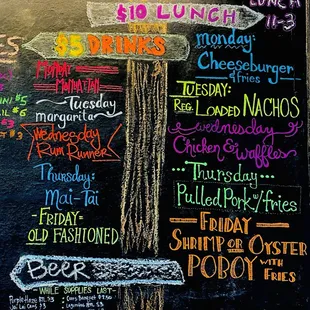 $10 LUNCH
LUNCH
11-3
$5 DRINKS
Monday
Manhattan
Tuesday
margarita
Wednesday
Rum Runner
Thursday:
Mai-Tai
-FRIDAY-
OLD FASHIONED
monday:
Cheeseburger
& fries
TUESDAY:
REG. LOADED NACHOS
wednesday
Chicken & Waffles
Thursday
Pulled Pork w/ fries
FRIDAY
SHRIMP OR OYSTER
POBOY WITH
FRIES
BEER
- WHILE SUPPLIES LAST -
Purple Haze
Jai Lai Cans $3